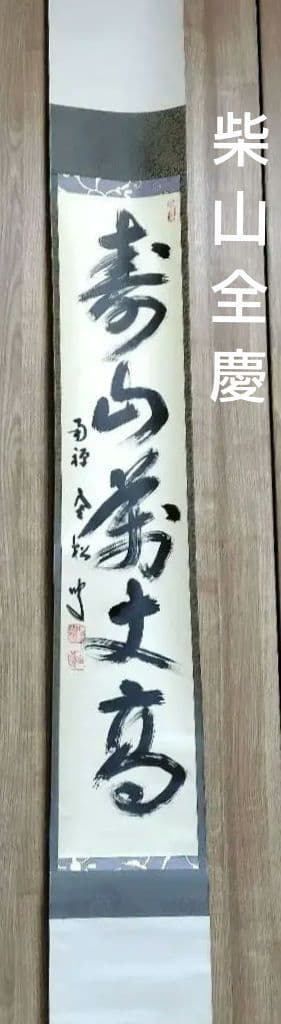 柴山全慶
寿山萬丈高
南禅 全慶